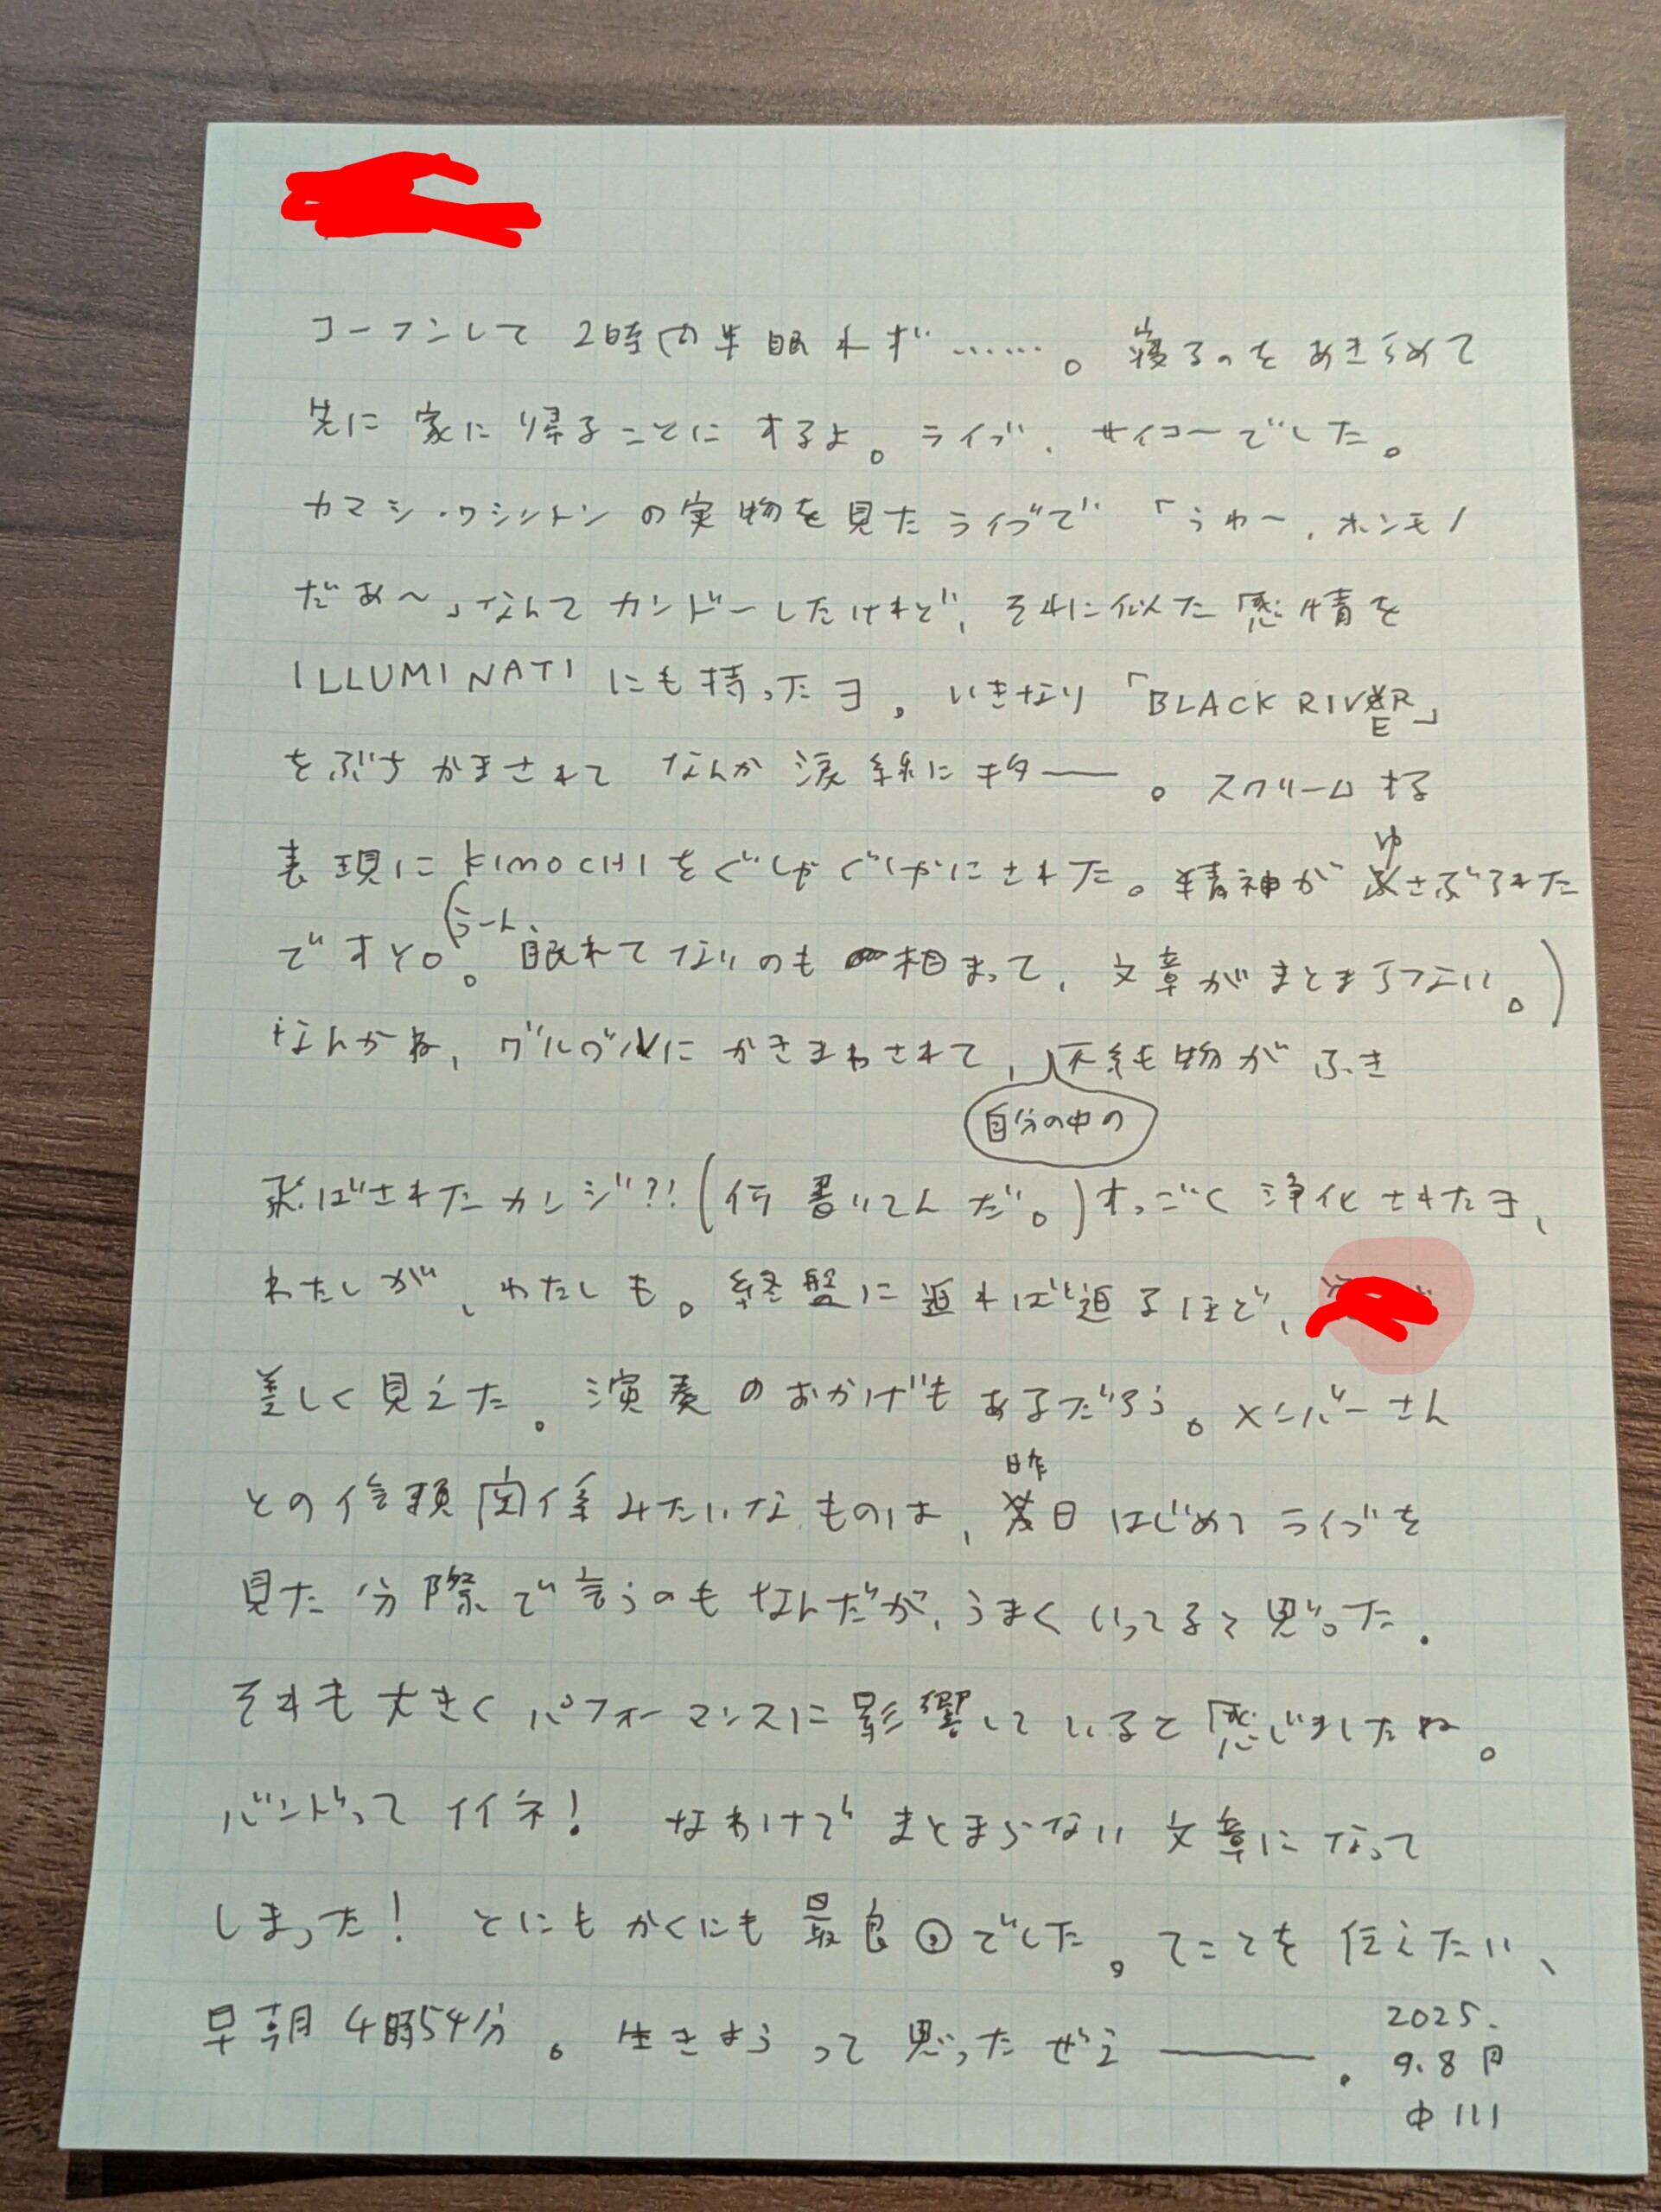 コーフンして2時間半眠れず……。寝るのをあきらめて
先に家に帰ることにするよ。ライブ、サイコーでした。
カマシ・ワシントンの実物を見たライブで「うわ〜、ホンモノ
だぁ〜」なんてカンドーしたけれど、それに似た感情を
ILLUMINATIにも持ったヨ。いきなり「BLACK RIVER」
をぶちかまされてなんか涙線にキター――。スクリームする
表現にKIMOCHIをぐしゃぐしゃにされた。精神がゆさぶられた
ですYO。(うーん、眠れてないのも相まって、文章がまとまらない。)
なんかね、グルグルにかきまわされて、自分の中の不純物がふき
飛ばされたカンジ?!(何書いてんだ。)すっごく浄化されたヨ、
わたしが、わたしも。終盤に迫れば迫るほど、
差しく見えた。演奏のおかげもあるだろう。メンバーさん
との信頼関係みたいなものは、昨日はじめてライブを
見た分際で言うのもなんだが、うまくいってると思った。
それも大きくパフォーマンスに影響していると感じましたね。
バンドってイイネ! なわけでまとまらない文章になって
しまった! とにもかくにも最良でした。てことを伝えたい、
早朝4時54分。生きようって思ったぜぇ――――.
2025.
9.8 月
中川